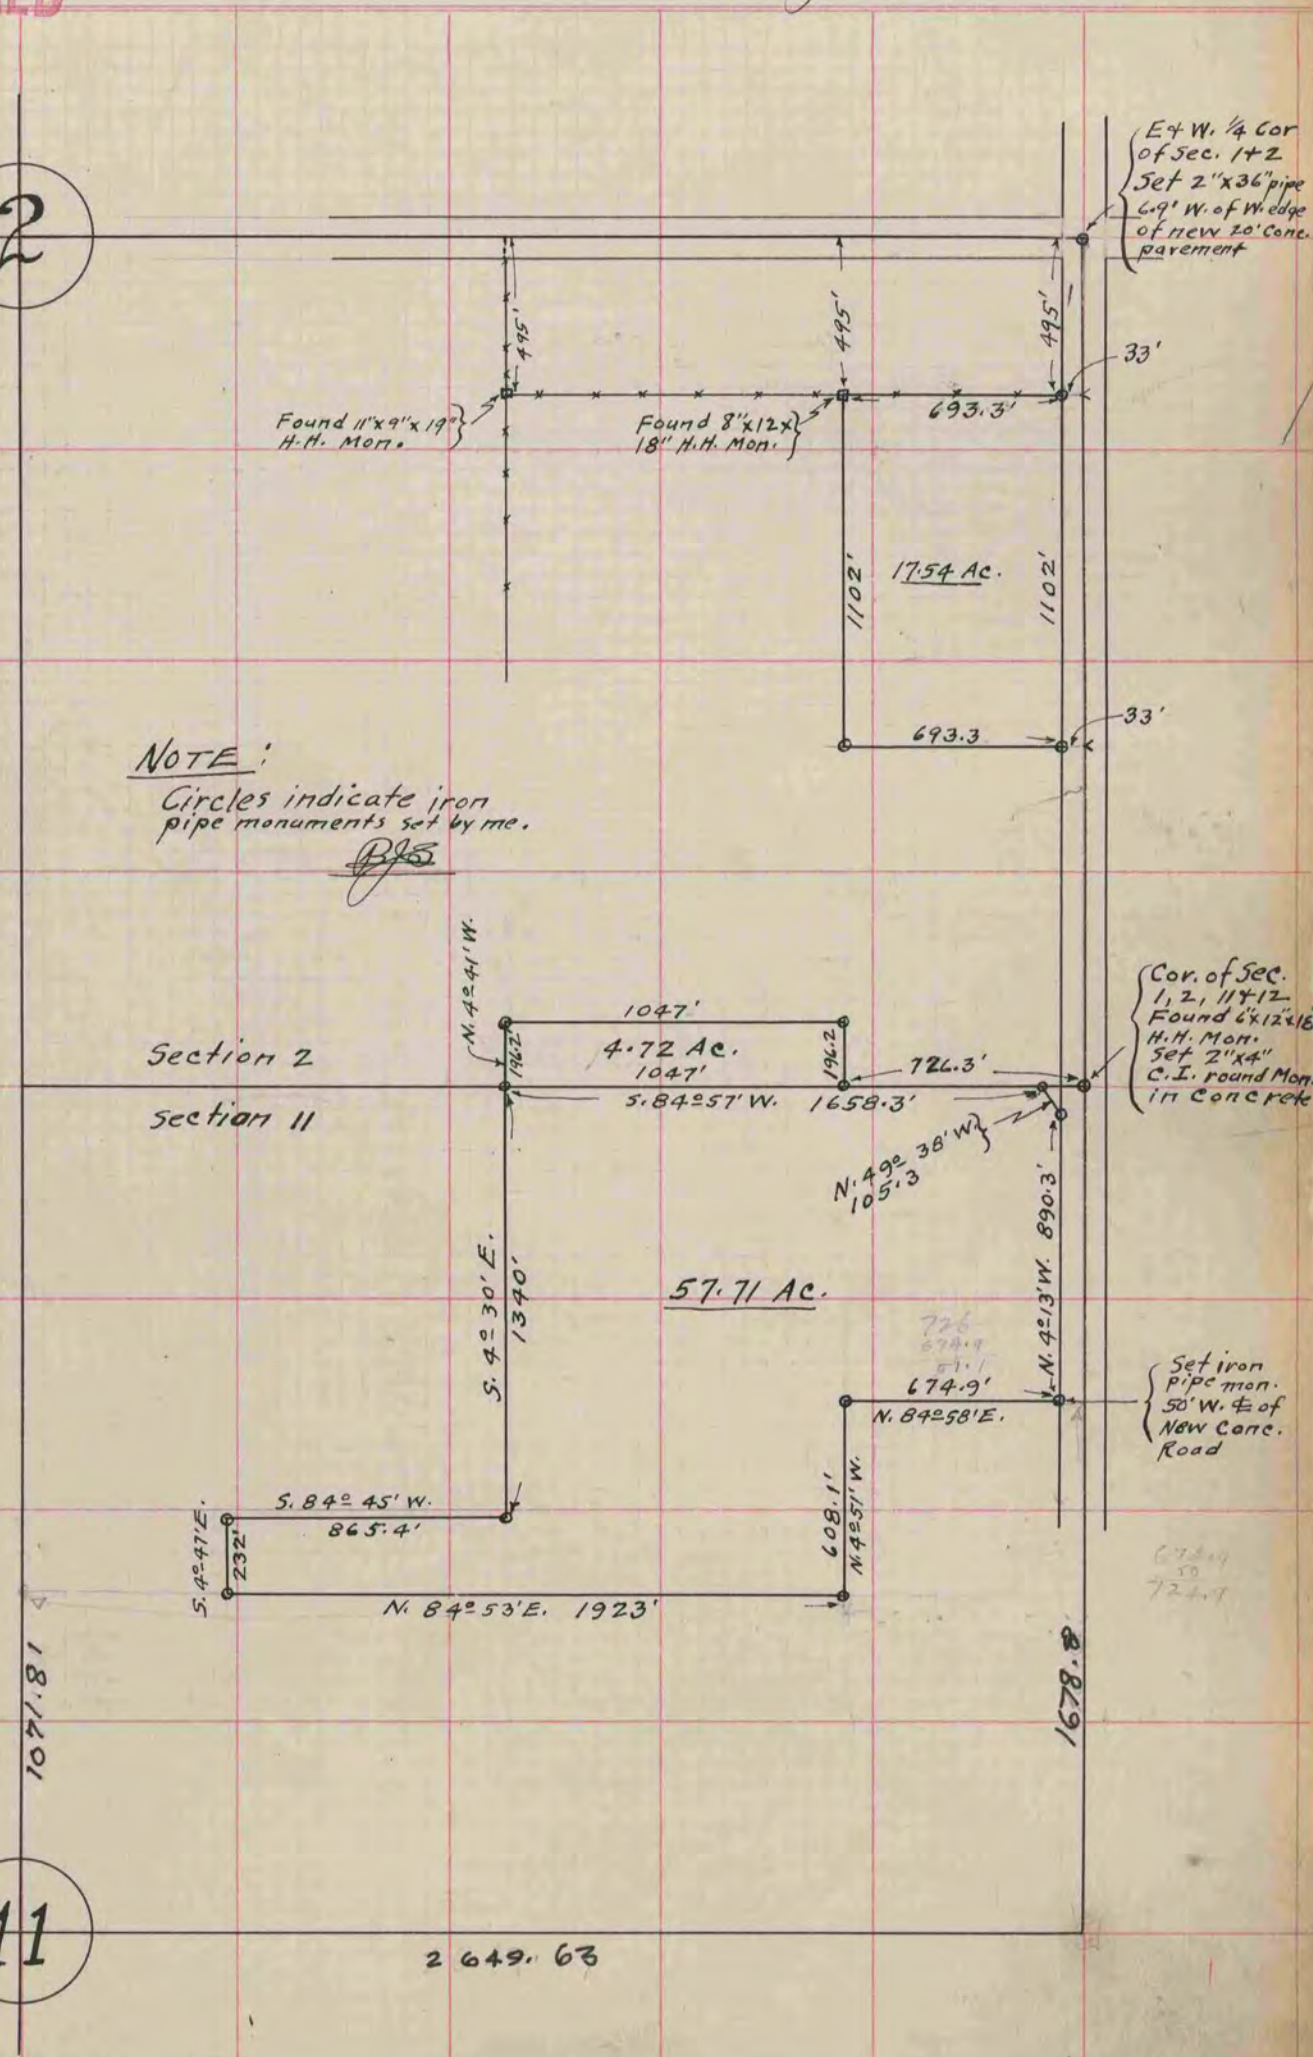 2
E & W. 1/4 Cor
of Sec. 1+2
Set 2"x36" pipe
6.9' W. of W. edge
of new 20' Conc.
pavement
495'
495'
495'
33'
Found 11"x9"x19"
H.H. Mon.
Found 8"x12x
18" H.H. Mon.
693.3'
1102'
17.54 Ac.
1102'
33'
693.3
NOTE:
Circles indicate iron
pipe monuments set by me.
BJS
N. 4º 41' W.
1047'
196.2'
4.72 Ac.
196.2
1047'
726.3'
Section 2
Section 11
S. 84º 57' W. 1658.3'
Cor. of Sec.
1, 2, 11+12
Found 6"x12"x18
H.H. Mon.
Set 2"x4"
C.I. round Mon.
in Concrete
N. 49º 38' W.
105.3
N. 4º 13' W. 890.3'
S. 4º 30' E.
1340'
57.71 Ac.
726
674.9
51.1
674.9'
N. 84º 58' E.
Set iron
pipe mon.
50' W. ℄ of
New Conc.
Road
S. 84º 45' W.
865.4'
S. 4º 47' E.
232'
608.1'
N. 4º 51' W.
N. 84º 53' E. 1923'
674.9
50
724.9
1071.81
1678.8
11
2649.63